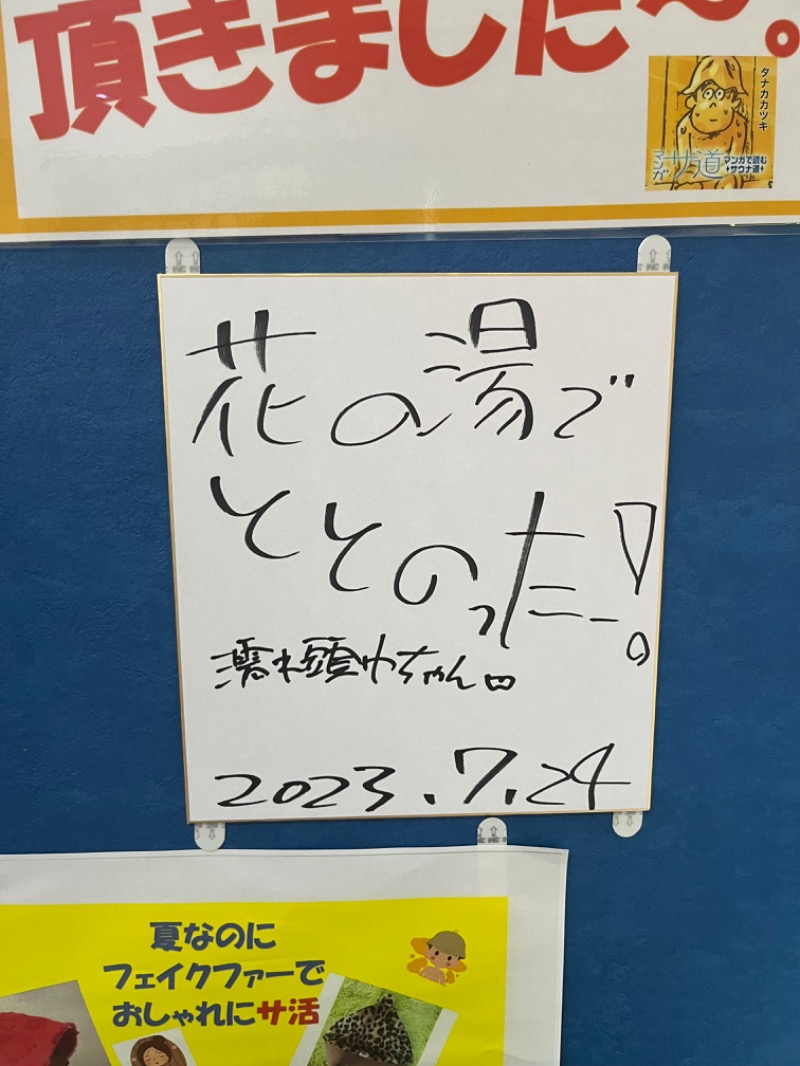 頂きました〜。
タナカカツキ
マンガ サ道
マンガで読む
サウナ道
花の湯で
ととのったー!
濡れ頭巾ちゃん
2023.7.24
夏なのに
フェイクファーで
おしゃれにサ活